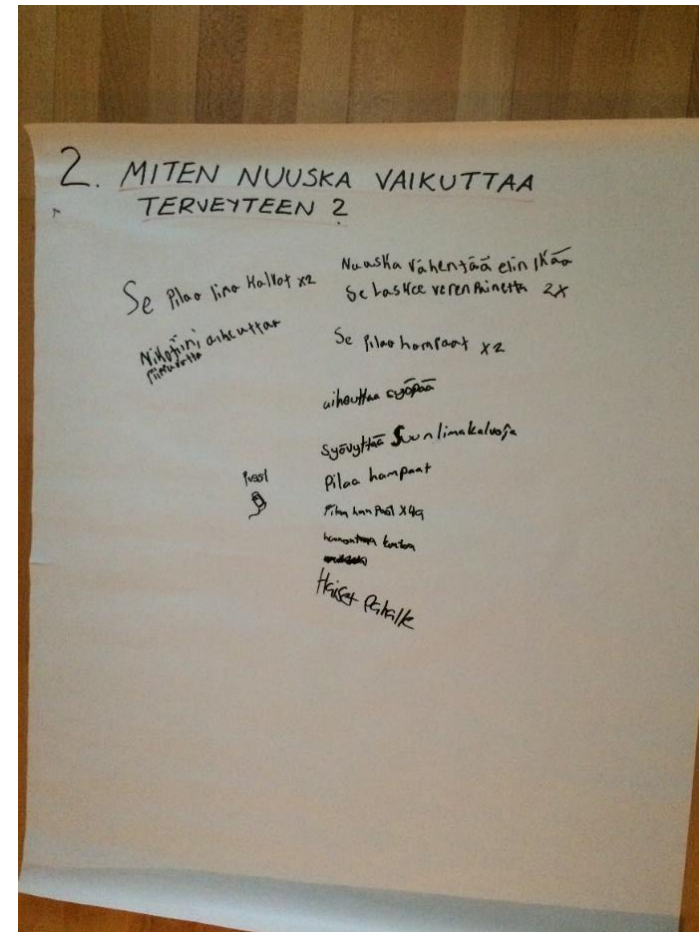 2. MITEN NUUSKA VAIKUTTAA
TERVEYTEEN ?
Se Pilaa lima Kalvot x2
Nikotiini aiheuttaa
Nuuska vähentää elin ikää
Se Laskee veren Painetta 2x
Se pilaa hampaat x2
aiheuttaa syöpää
Syövyttää Suun limakalvoja
Pilaa hampaat
Haiset Pahalle